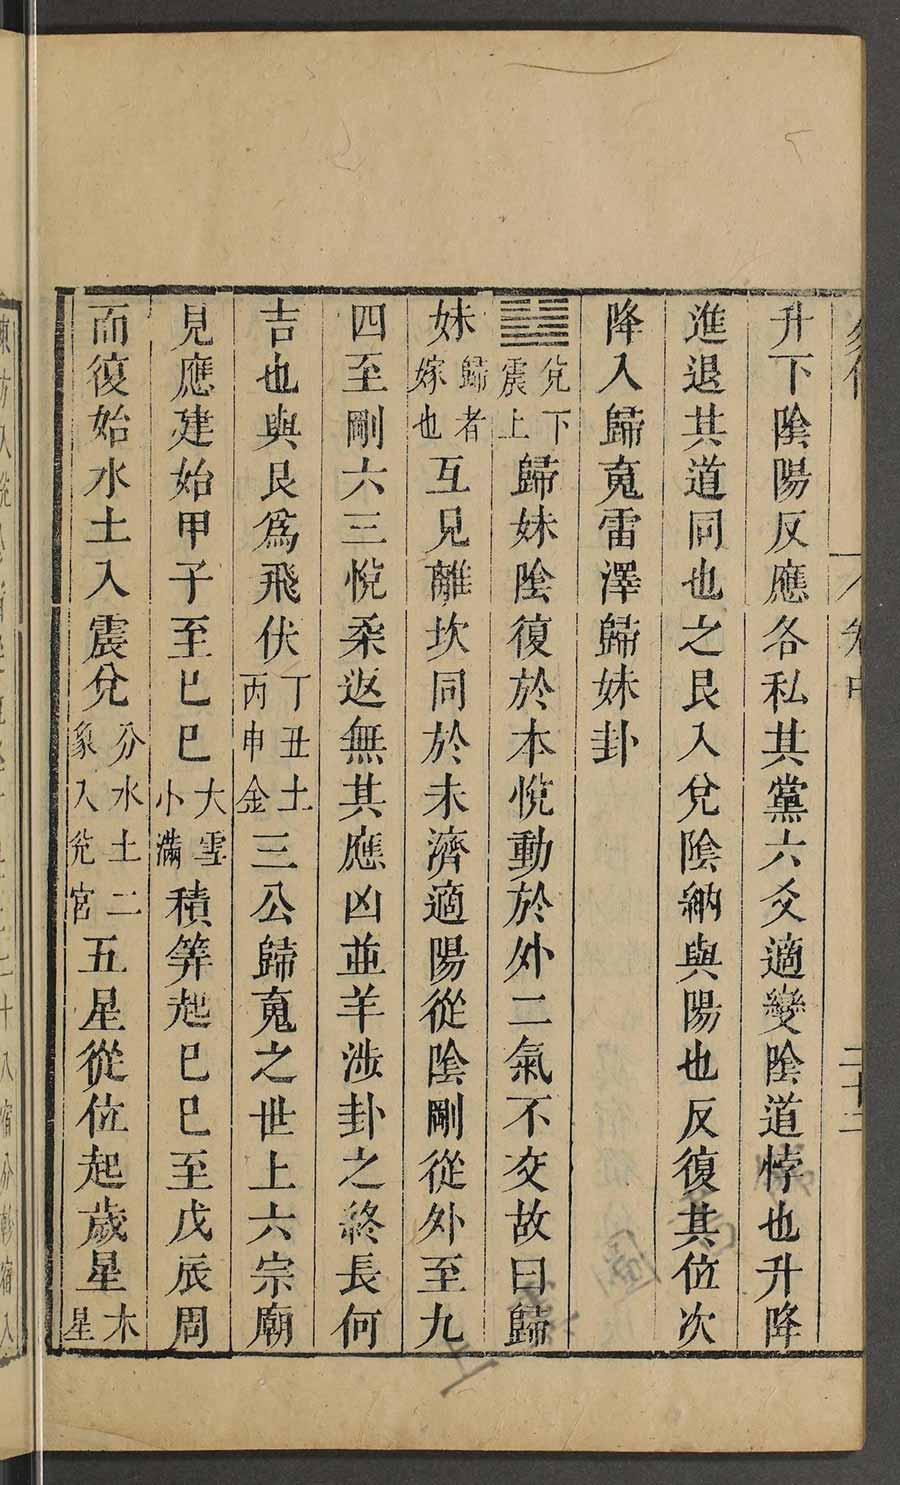 升下陰陽反應各私其黨六爻適變陰道悖也升降
進退其道同也之艮入兌陰納與陽也反復其位次
降入歸䰟雷澤歸妹卦
䷵兌下震上歸妹陰復於本悅動於外二氣不交故曰歸
妹歸者嫁也互見離坎同於未濟適陽從陰剛從外至九
四至剛六三悅柔返無其應凶並羊涉卦之終長何
吉也與艮爲飛伏丁丑土丙申金三公歸䰟之世上六宗廟
見應建始甲子至巳巳大雪小滿積筭起巳巳至戊辰周
而復始水土入震兌分水土二象入兌宮五星從位起歲星木星